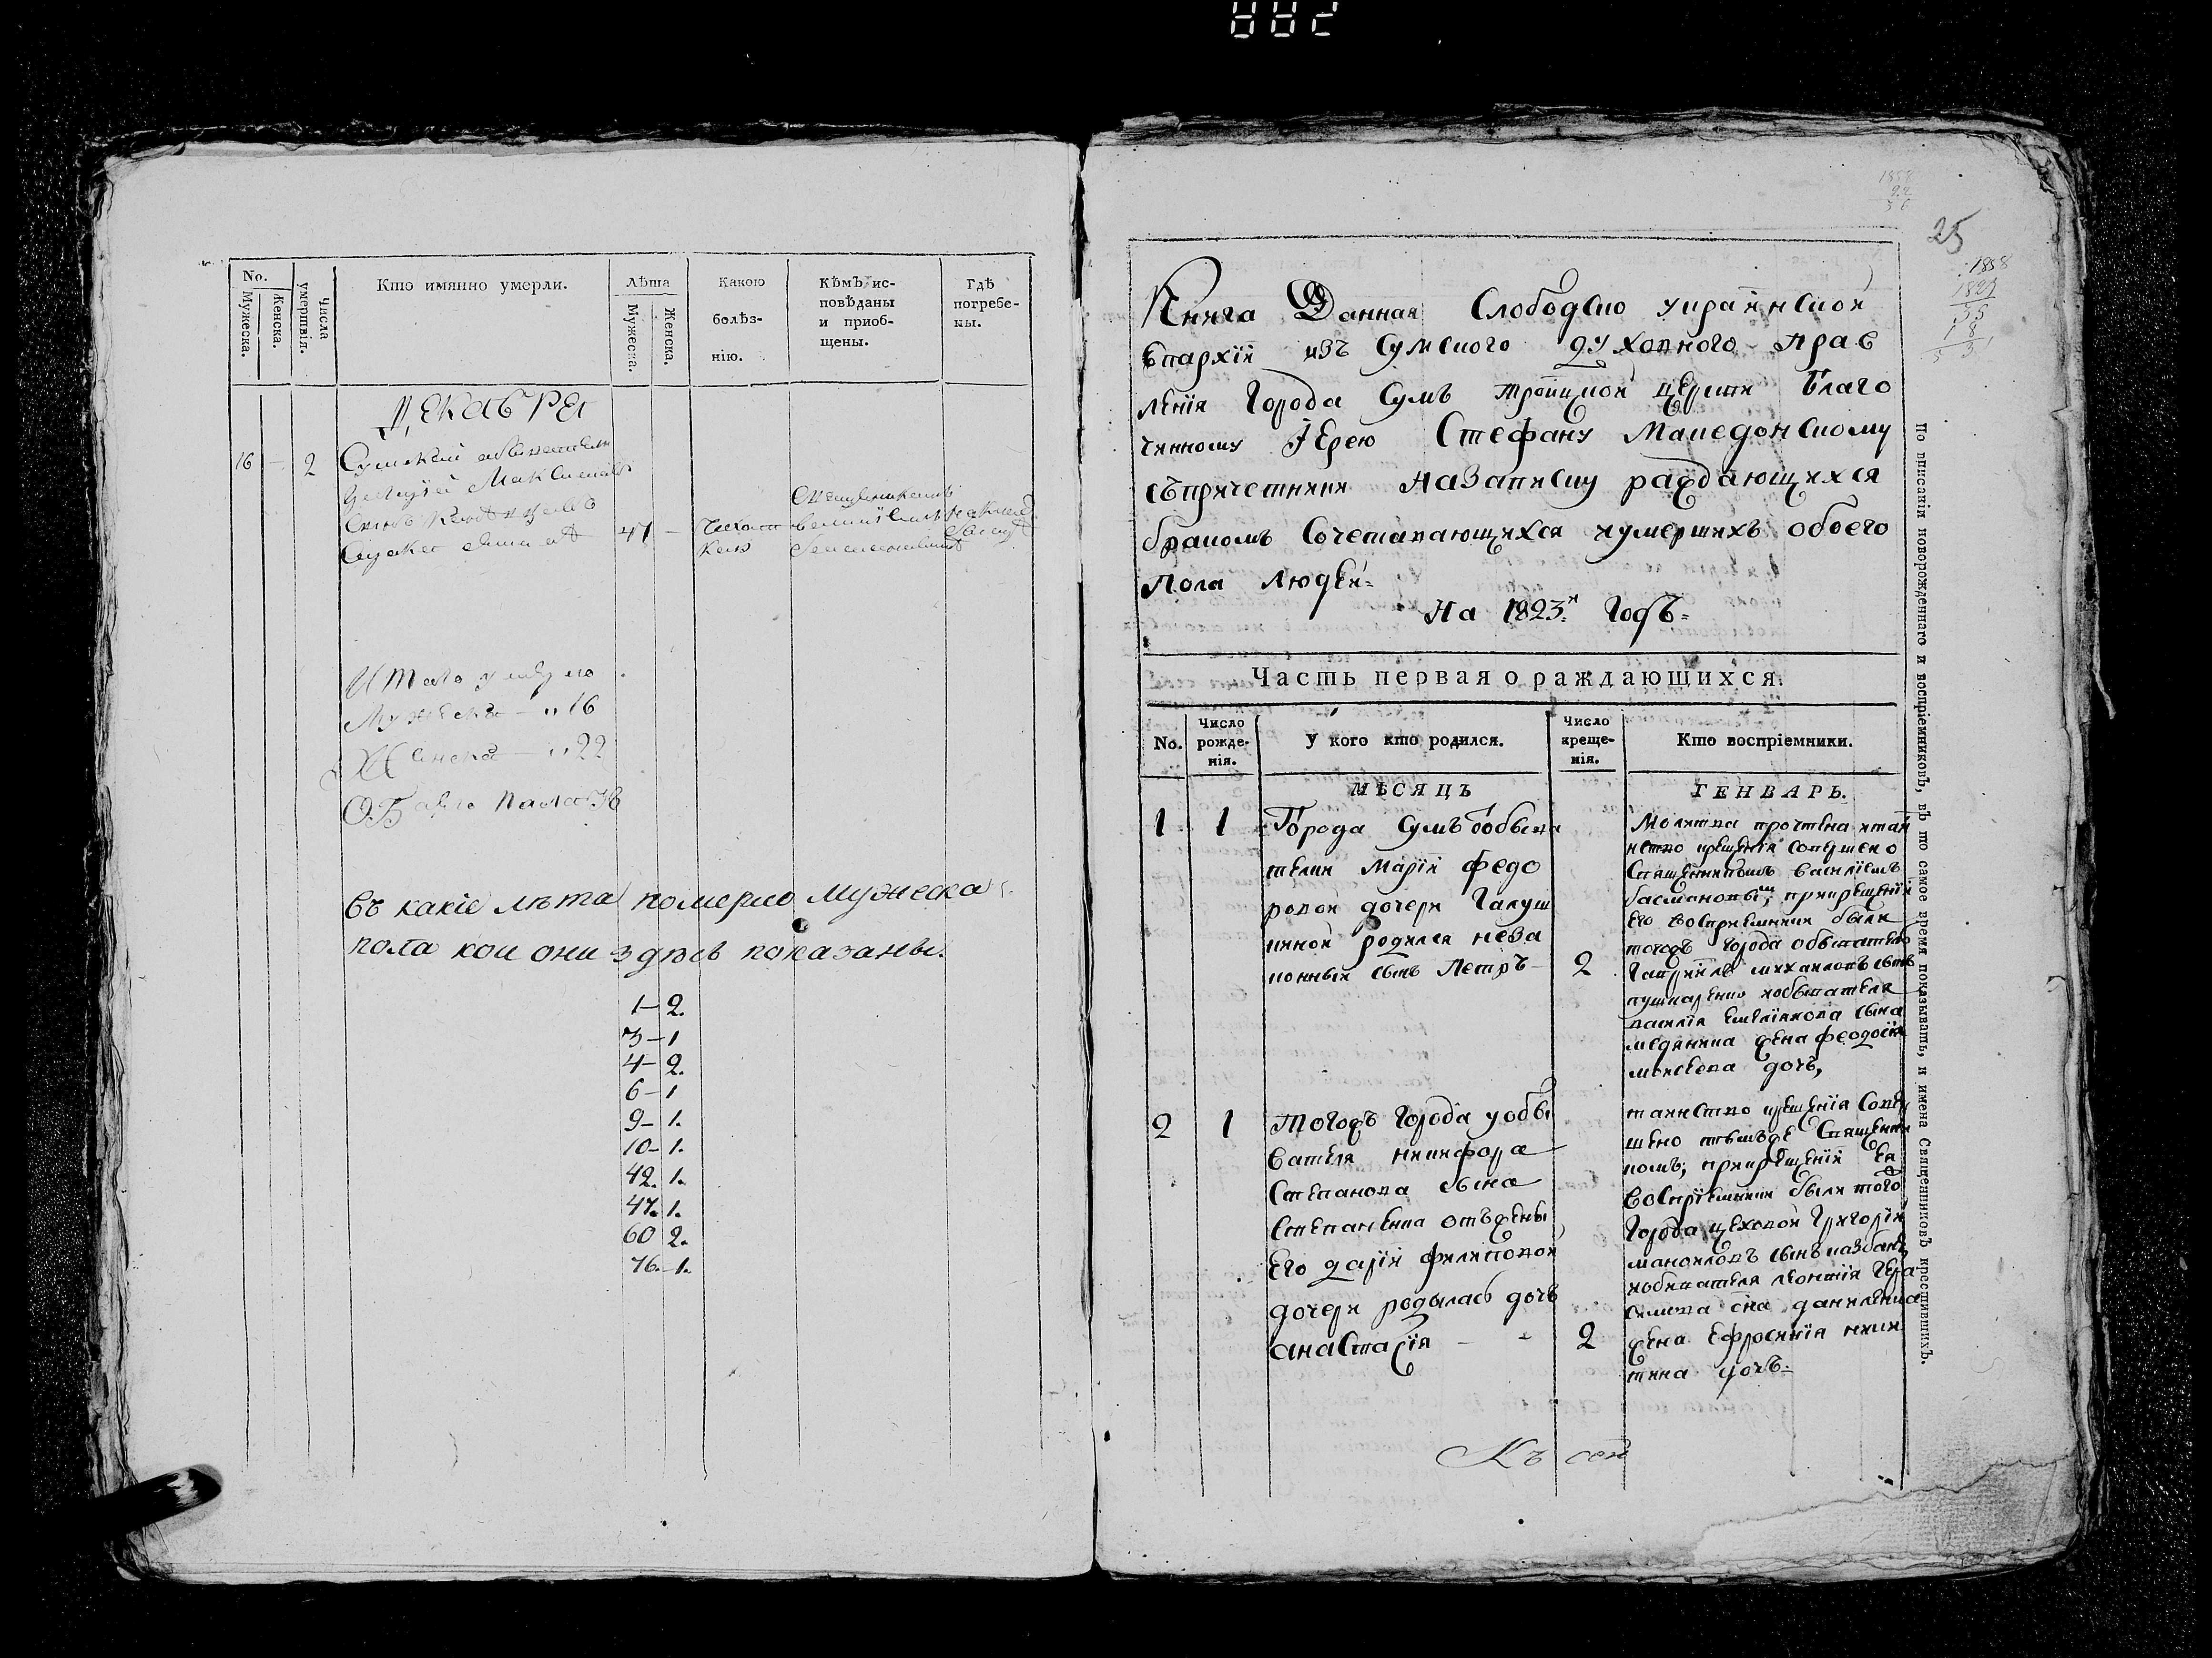 No.
Мужеска.
Женска.
Числа умертвія.
Кто имянно умерли.
Лѣта
Мужеска.
Женска.
Какою
болѣз-
нію.
Кѣмъ ис-
повѣданы
и приоб-
щены.
Гдѣ
погребе-
ны.
Декабрь
16 — 2 Сумскій обыватель
Максимовъ
сынъ
47 —
Итого умерло
Мужеска — 16
Женска — 22
Обаего пола 38
въ какіе лѣта померло мужеска
пола кои они здѣсь показаны.
1 — 2.
3 — 1
4 — 2.
6 — 1
9 — 1.
10 — 1.
42. 1.
47. 1.
60 2.
76. — 1.
25
1858
1823
Книга Данная Слободско украинской
Епархіи изъ Сумского духовного прав
ленія Города Сумъ троицкой церкви Благо
чинному Іерею Стефану Македонскому
съпричетники назаписку раждающихся
бракомъ Сочетавающихся иумершихъ обоего
Пола людей
На 1823й Годъ
Часть первая о раждающихся.
No.
Число
рожде-
нія.
У кого кто родился.
Число
креще-
нія.
Кто воспріемники.
МѢСЯЦЪ
ГЕНВАРЬ.
1 1
Города Сумъ обыва
телки Маріи федо
ровой дочери Галуш
киной родился неза
конный сынъ Петръ 2
Молитва прочтена итаи
нство крещенія совершено
Священникомъ василіемъ
басмановымъ, прикрещеніи
его воспріемники были
тогожъ города обыватель
Гавріилъ михаиловъ сынъ
пушкаренко иобывателя
василія Емелянова сына
медяника жена феодосія
моисеева дочь,
2 1
Тогожъ Города уобы
вателя никифора
Степанова сына
Степаненка отъжены
Его даріи филиповой
дочери родылась дочь
анастасія — 2
таинство крещенія Совер
шено тѣмъже Священни
комъ; прикрещеніи ея
воспріемники были того
Города цеховой Григорій
мануиловъ сынъ
иобывателя леонтія Гера
симова сна даниленка
жена Ефросинія ники
тина дочь
Къ сей
По вписаніи новорожденнаго и воспріемниковъ, въ то самое время показывать, и имена Священниковъ крестившихъ.